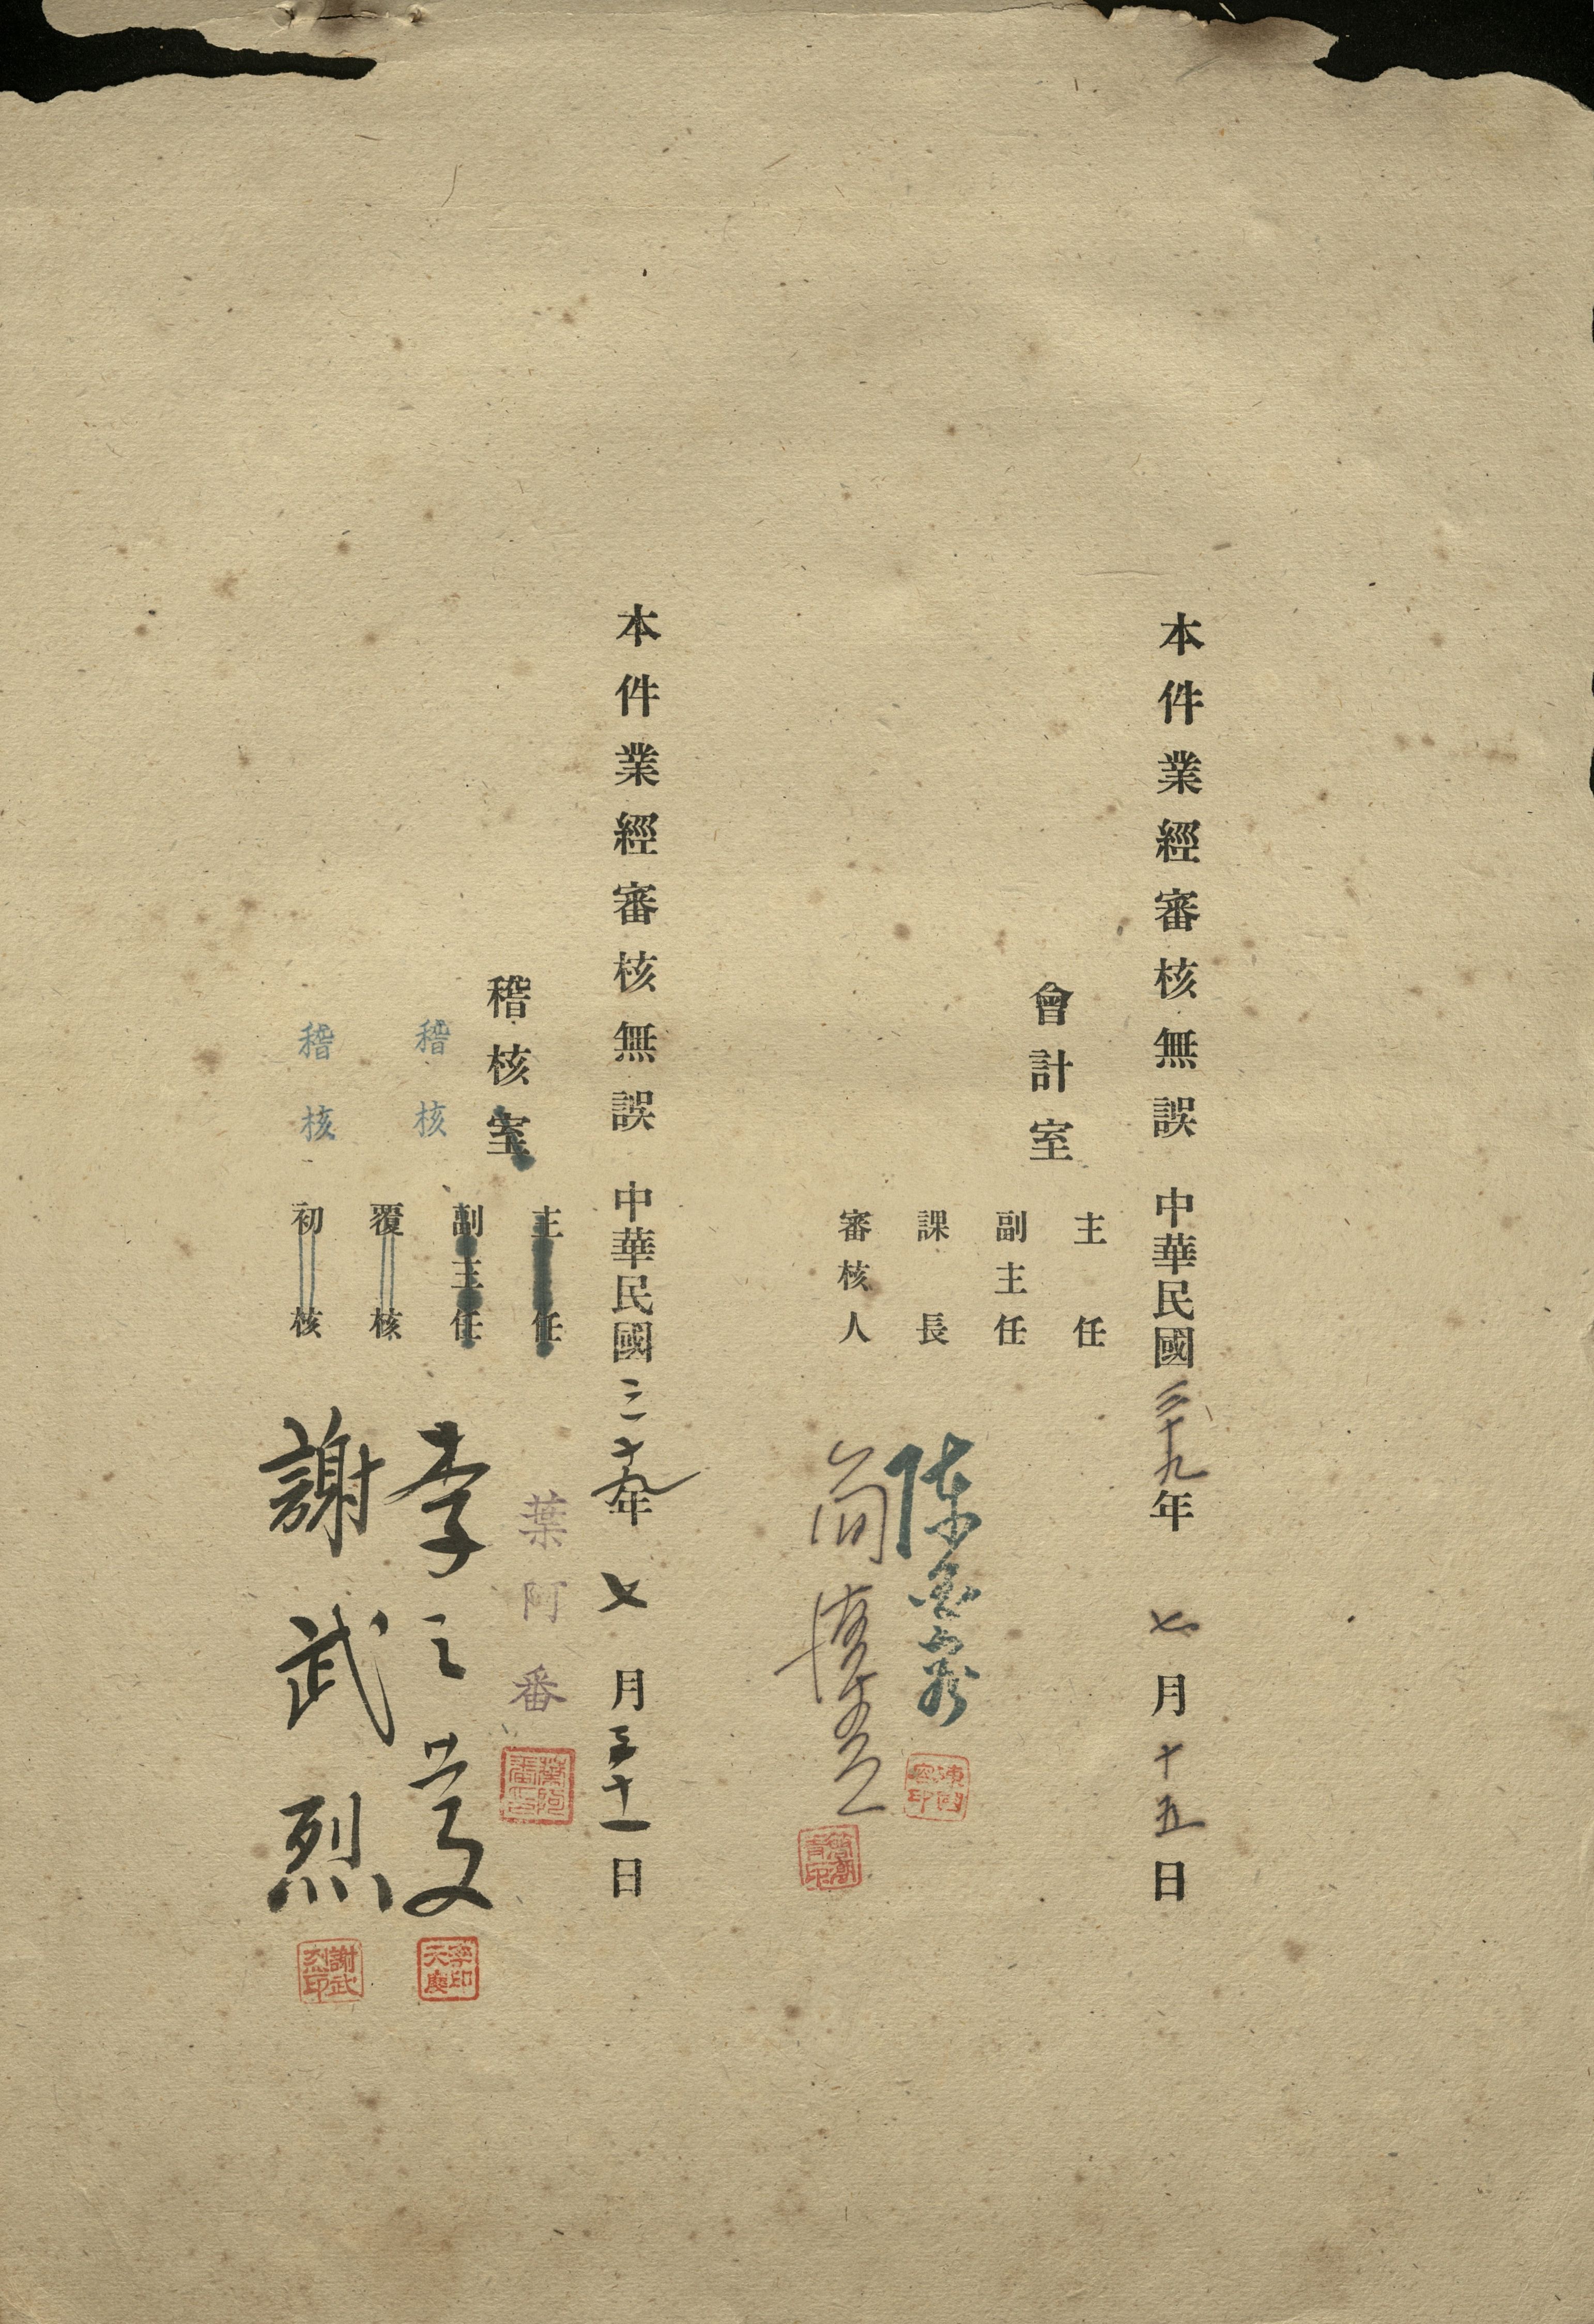 本件業經審核無誤 中華民國三十九年 七月十五日
會計室
主任
副主任
課長 陳
審核人 简
本件業經審核無誤 中華民國三十九年 七月三十一日
稽核室
主任 葉阿番
副主任
稽核
覆核 李天慶
李印天慶
稽核
初核 謝武烈
謝武烈印